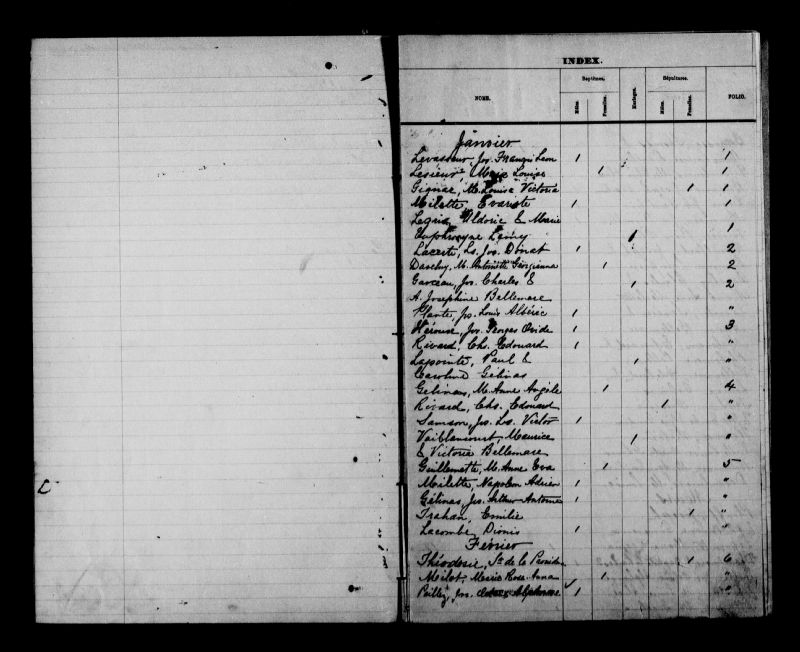 INDEX.
NOMS. Baptêmes. Mariages. Sépultures. FOLIO.
Mâles. Femelles. Mâles. Femelles.
Janvier
Levasseur, Jos. François Leon 1 1
Lesieur, Marie Louise 1 1
Gignac, M. Louise Victoria 1 1
Milette, Evariste 1 1
Legris, Uldoric & Marie
Euphrosyne Lamy 1 1
Lacerte, Ls. Jos. Donat 1 2
M. Antoinette Georgianna 1 2
Garceau, Jos. Charles & 1 2
A. Josephine Bellemare
Plante, Jos. Louis Albéric 1 "
Héroux, Jos. Georges Ovide 1 3
Rivard, Chs. Edouard 1 "
Lapointe, Paul & 1 "
Caroline Gélinas
Gelinas, M. Anne Angèle 1 4
Rivard, Chs. Edouard 1 "
Samson, Jos. Ls. Victor 1 "
Vaillancourt, Maurice 1 "
& Victoria Bellemare
Guillemette, M. Anne Eva 1 5
Milette, Napoleon Adrien 1 "
Gélinas, Jos. Arthur Antoine 1 "
Trahan, Emilie 1 "
Lacombe, Dionis 1 "
Février
Théodosie, Sr de la Provid. 1 6
Milot, Marie Rose Anna 1 "
Jos. Alphonse 1 "